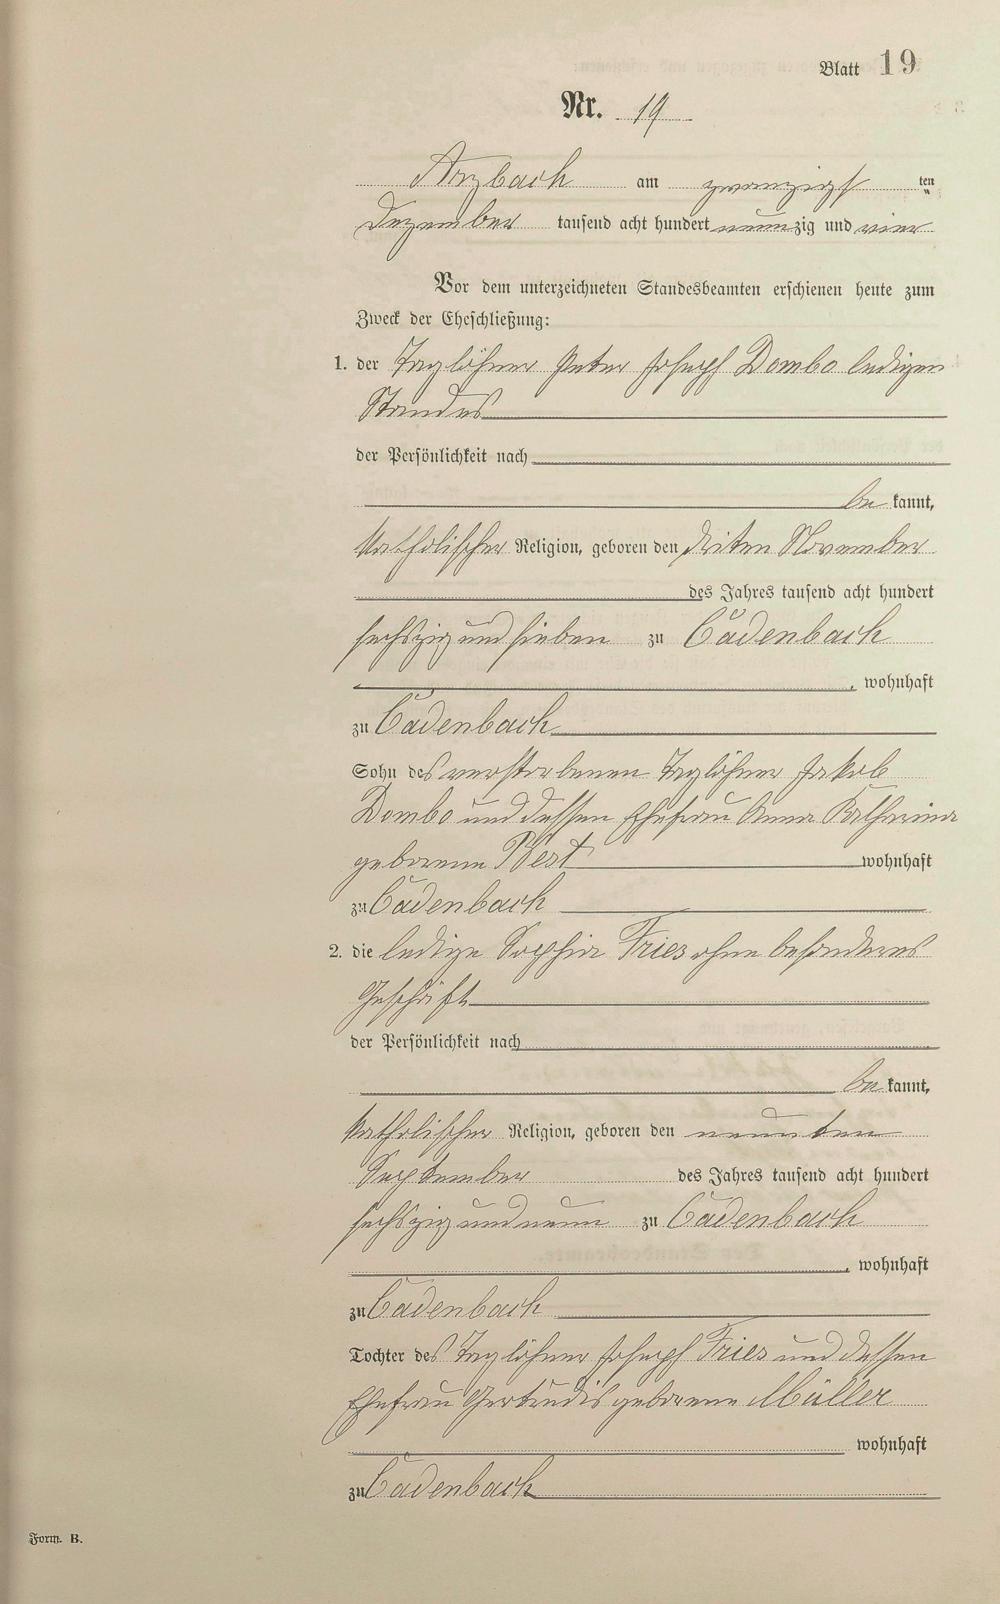 Blatt 19
Nr. 19
Arzbach am zwanzigsten
Dezember tausend acht hundert neunzig und vier
Vor dem unterzeichneten Standesbeamten erschienen heute zum
Zweck der Eheschließung:
1. der Taglöhner Peter Joseph Dombo ledigen
Standes
der Persönlichkeit nach
be kannt,
katholischer Religion, geboren den driten November
des Jahres tausend acht hundert
sechszig und sieben zu Cadenbach
, wohnhaft
zu Cadenbach
Sohn des verstorbenen Taglöhner Jakob
Dombo und dessen Ehefrau Anna Katharina
geborene Best wohnhaft
zu Cadenbach
2. die ledige Sophia Fries ohne besonderes
Geschäft
der Persönlichkeit nach
be kannt,
katholischer Religion, geboren den neunten
September des Jahres tausend acht hundert
sechszig und neun zu Cadenbach
, wohnhaft
zu Cadenbach
Tochter des Taglöhner Joseph Fries und dessen
Ehefrau Gertrudis geborene Müller
wohnhaft
zu Cadenbach
Form. B.